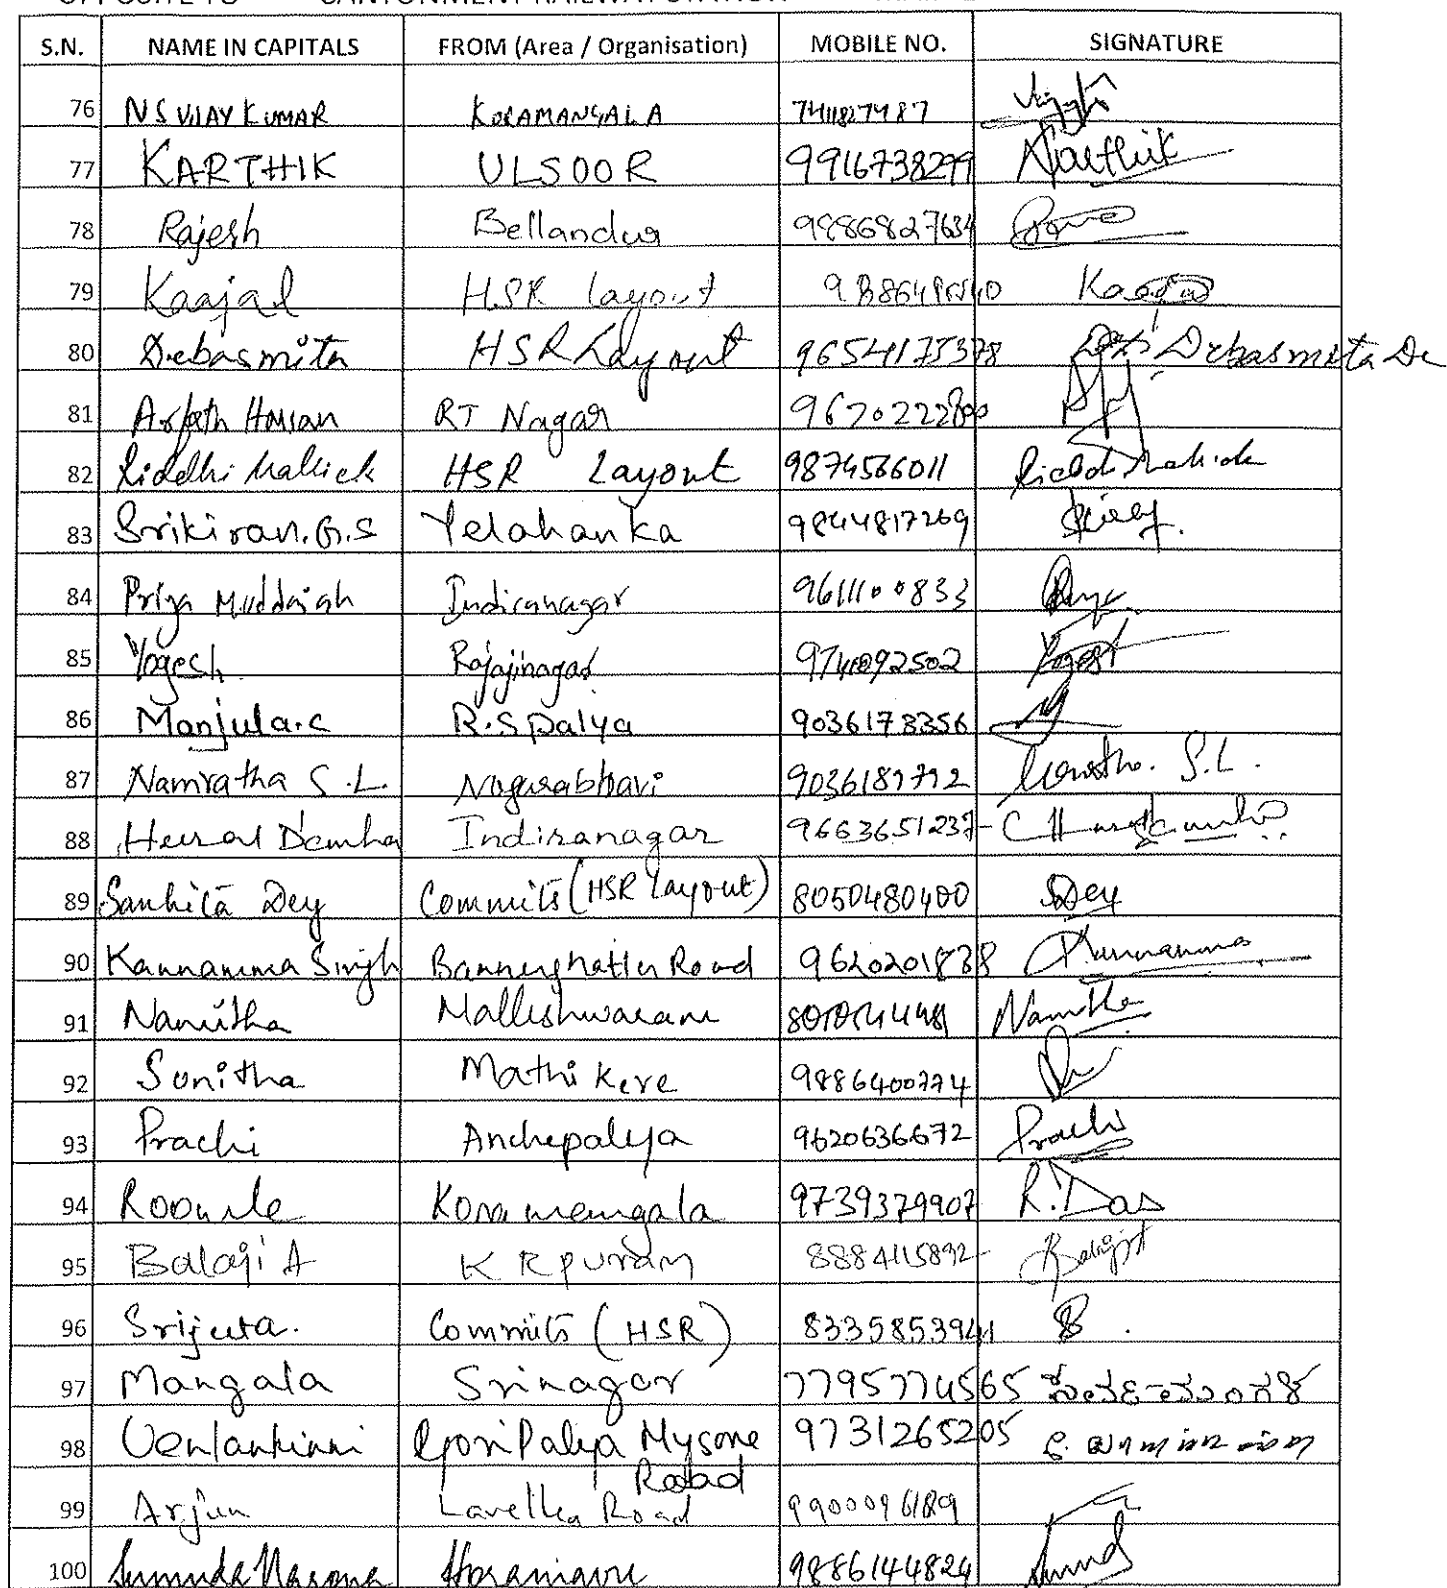 CANTONMENT RAILWAY STATION
S.N. NAME IN CAPITALS FROM (Area / Organisation) MOBILE NO. SIGNATURE
76 N S VIJAY KUMAR KORAMANGALA 7411827487
77 KARTHIK ULSOOR 9916738299 Karthik
78 Rajesh Bellandur 9886827634
79 Kaajal HSR layout Kaajal
80 Debasmita HSR Layout 9654175378 Debasmita De
81 RT Nagar
82 Riddhi Mallick HSR Layout 9874566011 Riddhi Mallick
83 Srikiran.G.S Yelahanka 9844817269
84 Priya Muddaiah Indiranagar 9611100833
85 Yogesh Rajajinagar 9741092502 Yogesh
86 Manjula.c R.S palya 9036178356
87 Namratha S.L. Nagarabhavi 9036187772 Namratha. S.L.
88 Indiranagar 9663651237
89 Sanhita Dey Commits (HSR Layout) 8050480400 Dey
90 Kannamma Singh Bannerghatta Road 9620201838 Kannamma
91 Namitha Malleshwaram Namitha
92 Sunitha Mathikere 9886400774
93 Prachi Anchepalya 9620636672 Prachi
94 Koramangala 9739379907 R. Das
95 Balaji A K R puram 8884115892 Balaji
96 Srijeeta. Commits (HSR) 8335853941
97 Mangala Srinagar 7795774565
98 Goripalya Mysore Road 9731265205
99 Arjun Lavella Road 9900096189
100 9886144824